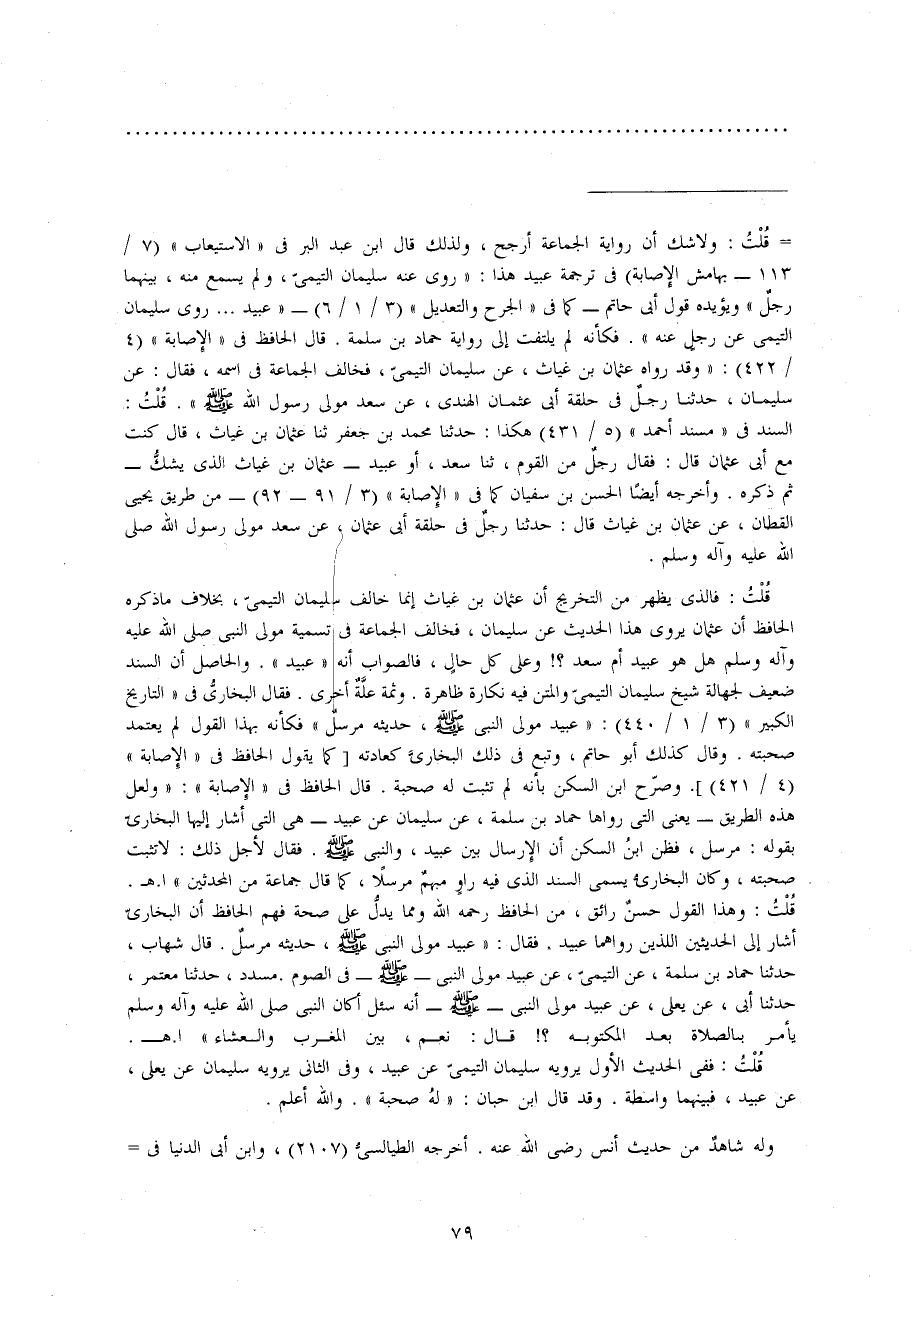 ................................................................
= قُلْتُ : ولاشك أن رواية الجماعة أرجح ، ولذلك قال ابن عبد البر فى « الاستيعاب » (٧ /
١١٣ ــ بهامش الإصابة) فى ترجمة عبيد هذا : « روى عنه سليمان التيمىّ ، ولم يسمع منه ، بينهما
رجلٌ » ويؤيده قول أبى حاتم ــ كما فى « الجرح والتعديل » (٣ / ١ / ٦) ــ « عبيد ... روى سليمان
التيمى عن رجلٍ عنه » . فكأنه لم يلتفت إلى رواية حماد بن سلمة . قال الحافظ فى « الإصابة » (٤
/ ٤٢٢) : « وقد رواه عثمان بن غياث ، عن سليمان التيمىّ ، فخالف الجماعة فى اسمه ، فقال : عن
سليمان ، حدثنا رجلٌ فى حلقة أبى عثمان الهندى ، عن سعد مولى رسول الله ﷺ » . قُلْتُ :
السند فى « مسند أحمد » (٥ / ٤٣١) هكذا : حدثنا محمد بن جعفر ثنا عثمان بن غياث ، قال كنت
مع أبى عثمان قال : فقال رجلٌ من القوم ، ثنا سعد ، أو عبيد ــ عثمان بن غياث الذى يشكُّ ــ
ثم ذكره . وأخرجه أيضًا الحسن بن سفيان كما فى « الإصابة » (٣ / ٩١ ــ ٩٢) ــ من طريق يحيى
القطان ، عن عثمان بن غياث قال : حدثنا رجلٌ فى حلقة أبى عثمان ، عن سعد مولى رسول الله صلى
الله عليه وآله وسلم .
قُلْتُ : فالذى يظهر من التخريج أن عثمان بن غياث إنما خالف سليمان التيمىّ ، بخلاف ماذكره
الحافظ أن عثمان يروى هذا الحديث عن سليمان ، فخالف الجماعة فى تسمية مولى النبى صلى الله عليه
وآله وسلم هل هو عبيد أم سعد ؟! وعلى كل حالٍ ، فالصواب أنه « عبيد » . والحاصل أن السند
ضعيف لجهالة شيخ سليمان التيمىّ والمتن فيه نكارة ظاهرة . وثمة علَّةٌ أخرى . فقال البخارىُّ فى « التاريخ
الكبير » (٣ / ١ / ٤٤٠) : « عبيد مولى النبى ﷺ ، حديثه مرسلٌ » فكأنه بهذا القول لم يعتمد
صحبته . وقال كذلك أبو حاتم ، وتبع فى ذلك البخارىَّ كعادته [ كما يقول الحافظ فى « الإصابة »
(٤ / ٤٢١) ]. وصرّح ابن السكن بأنه لم تثبت له صحبة . قال الحافظ فى « الإصابة » : « ولعل
هذه الطريق ــ يعنى التى رواها حماد بن سلمة ، عن سليمان عن عبيد ــ هى التى أشار إليها البخارىّ
بقوله : مرسل ، فظن ابنُ السكن أن الإرسال بين عبيد ، والنبى ﷺ . فقال لأجل ذلك : لاتثبت
صحبته ، وكان البخارىُّ يسمى السند الذى فيه راوٍ مبهمٌ مرسلًا ، كما قال جماعة من المحدثين » ا.هـ .
قُلْتُ : وهذا القول حسنٌ رائق ، من الحافظ رحمه الله ومما يدلُّ على صحة فهم الحافظ أن البخارىَّ
أشار إلى الحديثين اللذين رواهما عبيد . فقال : « عبيد مولى النبى ﷺ ، حديثه مرسلٌ . قال شهاب ،
حدثنا حماد بن سلمة ، عن التيمىّ ، عن عبيد مولى النبى ــ ﷺ ــ فى الصوم .مسدد ، حدثنا معتمر ،
حدثنا أبى ، عن يعلى ، عن عبيد مولى النبى ــ ﷺ ــ أنه سئل أكان النبى صلى الله عليه وآله وسلم
يأمر بالصلاة بعد المكتوبه ؟! قال : نعم ، بين المغرب والعشاء » ا.هـ .
قُلْتُ : ففى الحديث الأول يرويه سليمان التيمىّ عن عبيد ، وفى الثانى يرويه سليمان عن يعلى ،
عن عبيد ، فبينهما واسطة . وقد قال ابن حبان : « لهُ صحبة » . والله أعلم .
وله شاهدٌ من حديث أنس رضى الله عنه . أخرجه الطيالسىُّ (٢١٠٧) ، وابن أبى الدنيا فى =
٧٩